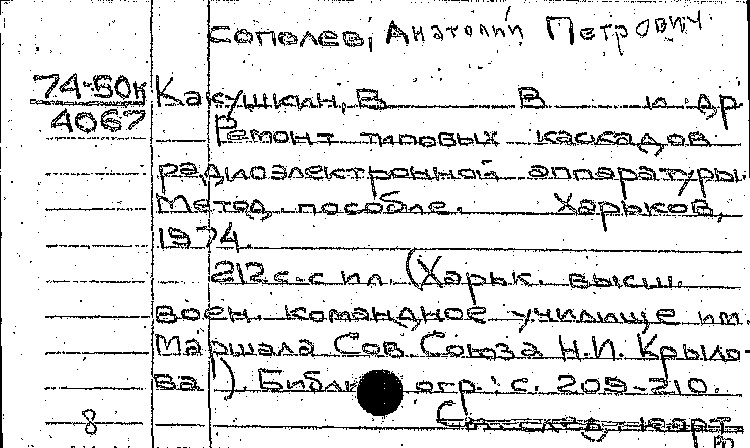 Сополев, Анатолий Петрович
74-50к Какушкин, В. В. и др.
4067
Ремонт типовых каскадов
радиоэлектронной аппаратуры.
Метод. пособие. Харьков,
1974.
212 с. с ил. (Харьк. высш.
воен. командное училище им.
Маршала Сов. Союза Н.И. Крыло-
ва). Библиогр.: с. 209-210.
См. след. карт.
8